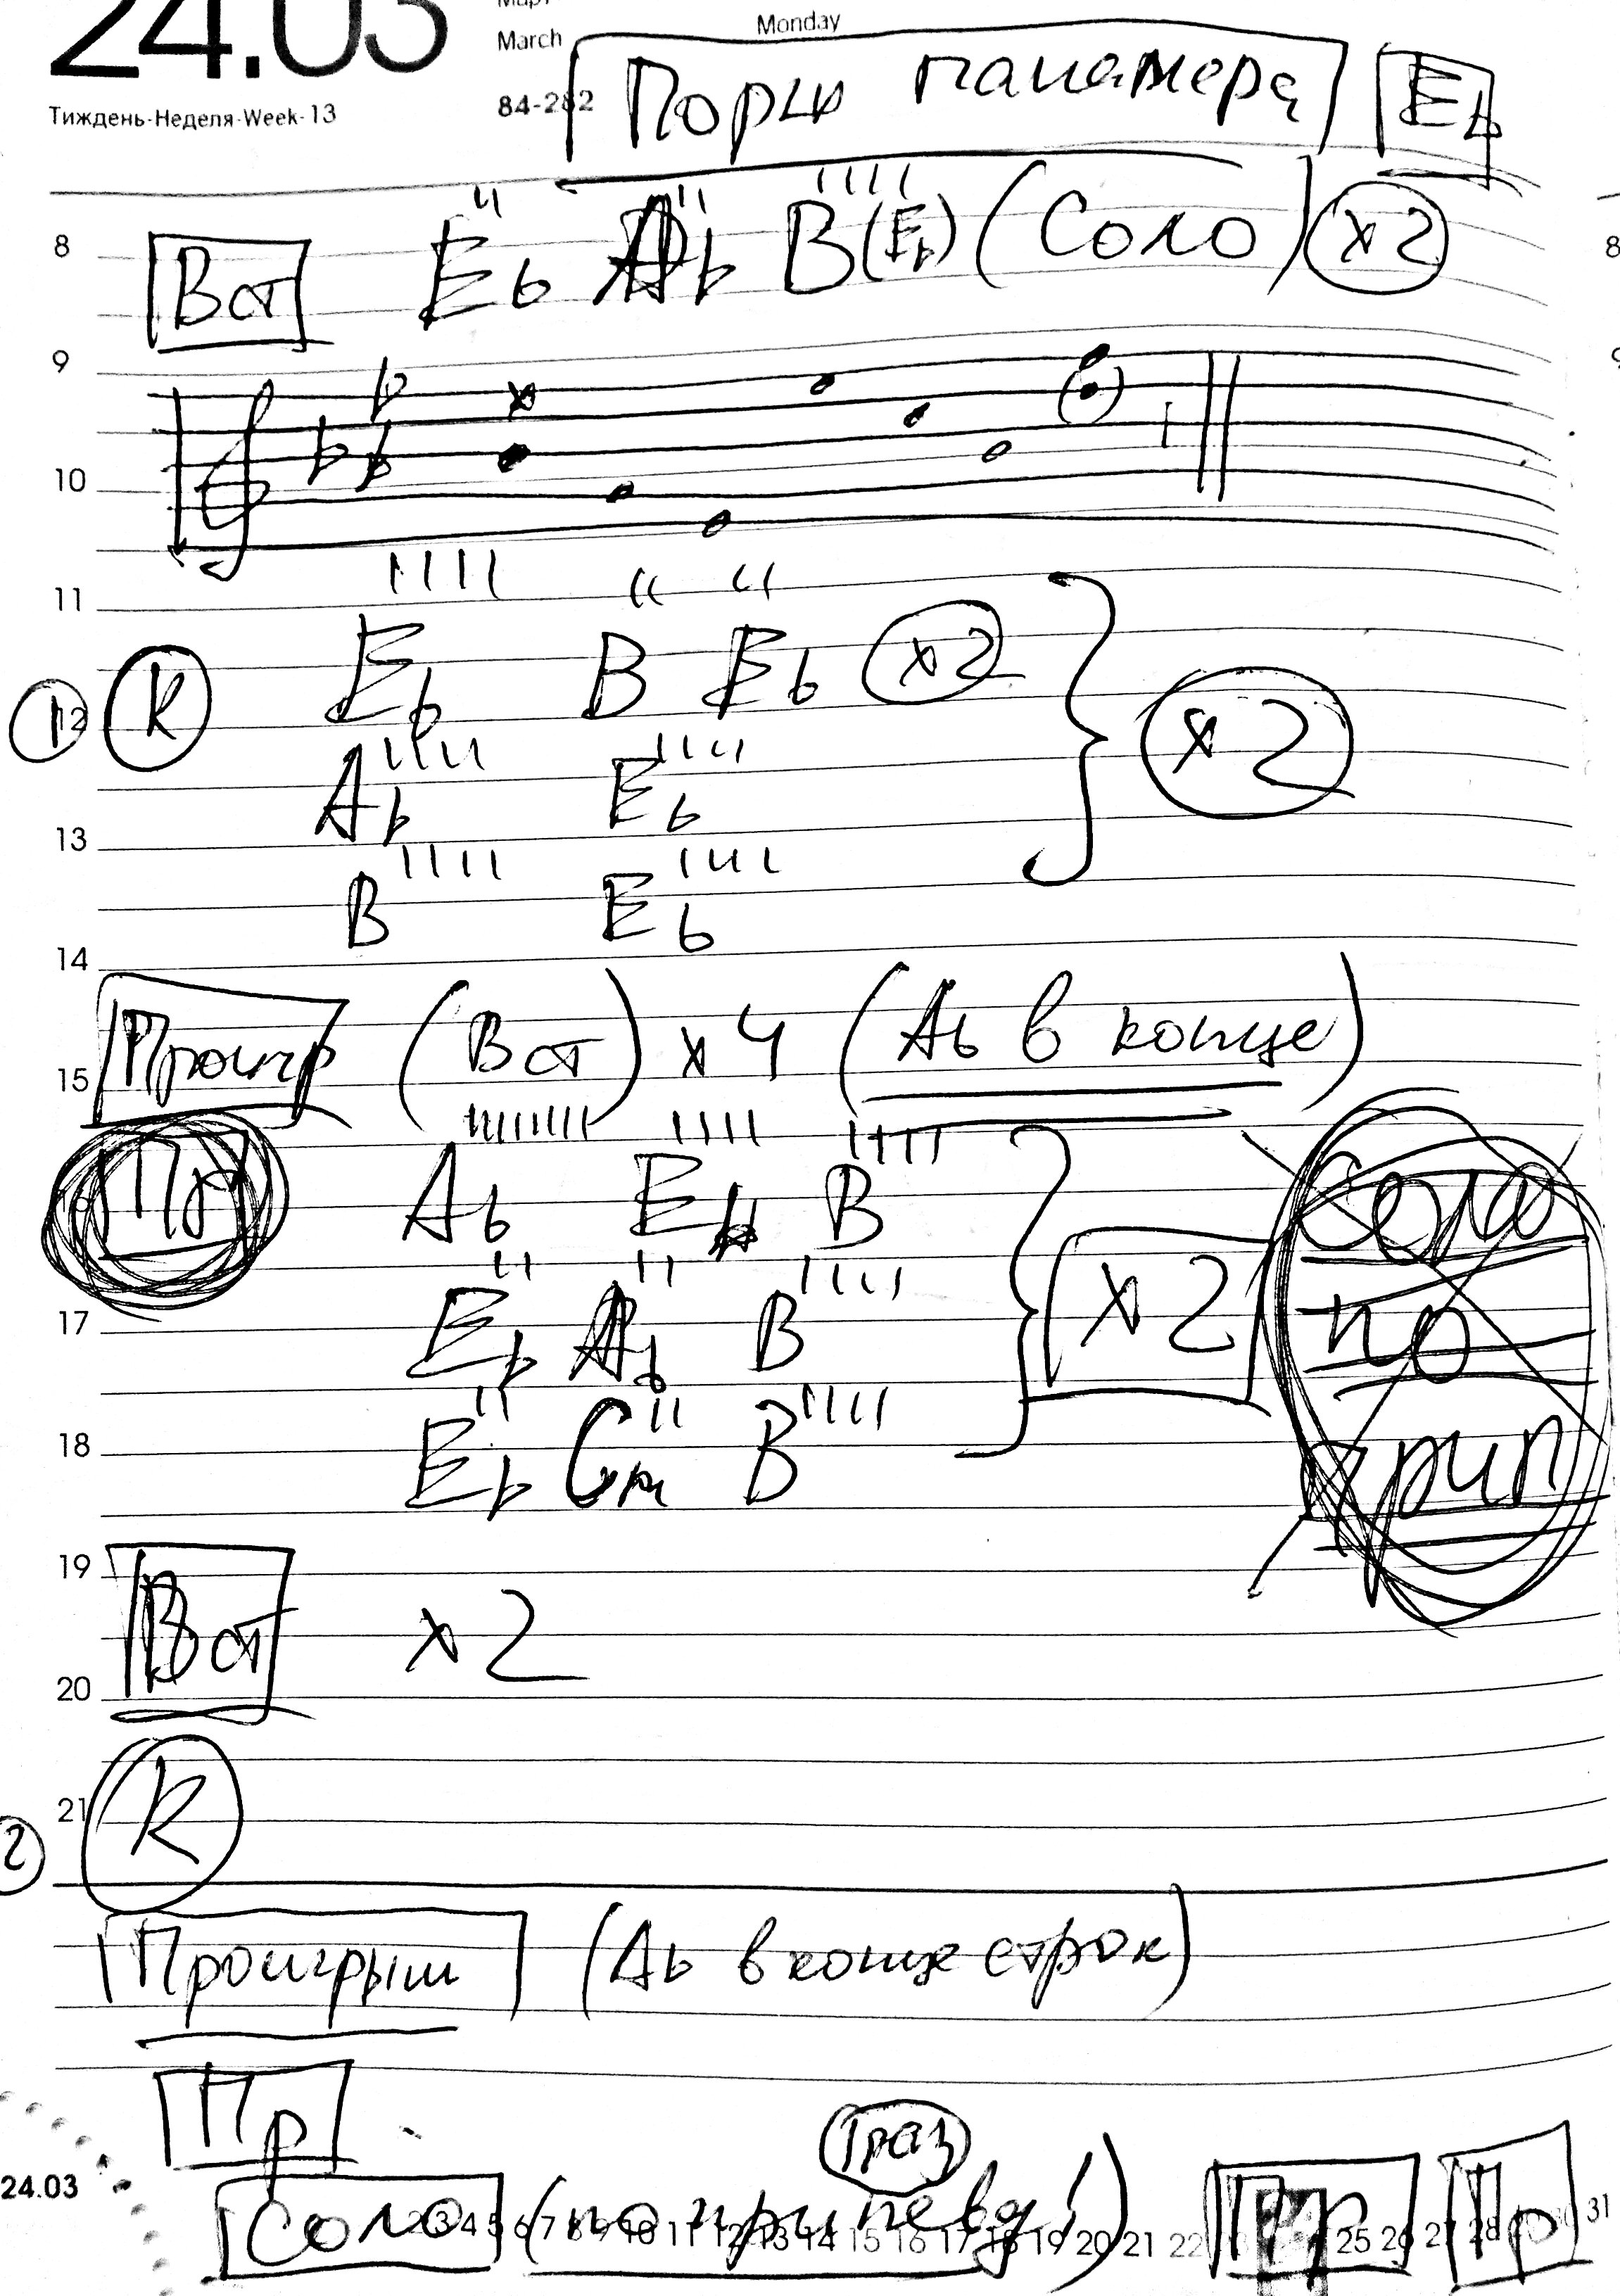 24.03
March Monday
Тиждень-Неделя-Week-13 84-282 Порш панамера Eb
8 Вст Eb Ab B(Eb) (Соло) x2
9
10
11
1 12 К Eb B Eb x2 x2
Ab Eb
13
B Eb
14
Проигр (Вст) x4 (Ab в конце)
15
Пр Ab Eb B x2 соло
17 Eb Ab B по
18 Eb Cm B прип
19
Вст x2
20
2 21 К
Проигрыш (Ab в конце строк)
Пр
1 раз
24.03 Соло (по припеву!) Пр Пр
2 3 4 5 6 7 8 9 10 11 12 13 14 15 16 17 18 19 20 21 22 25 26 27 28 30 31